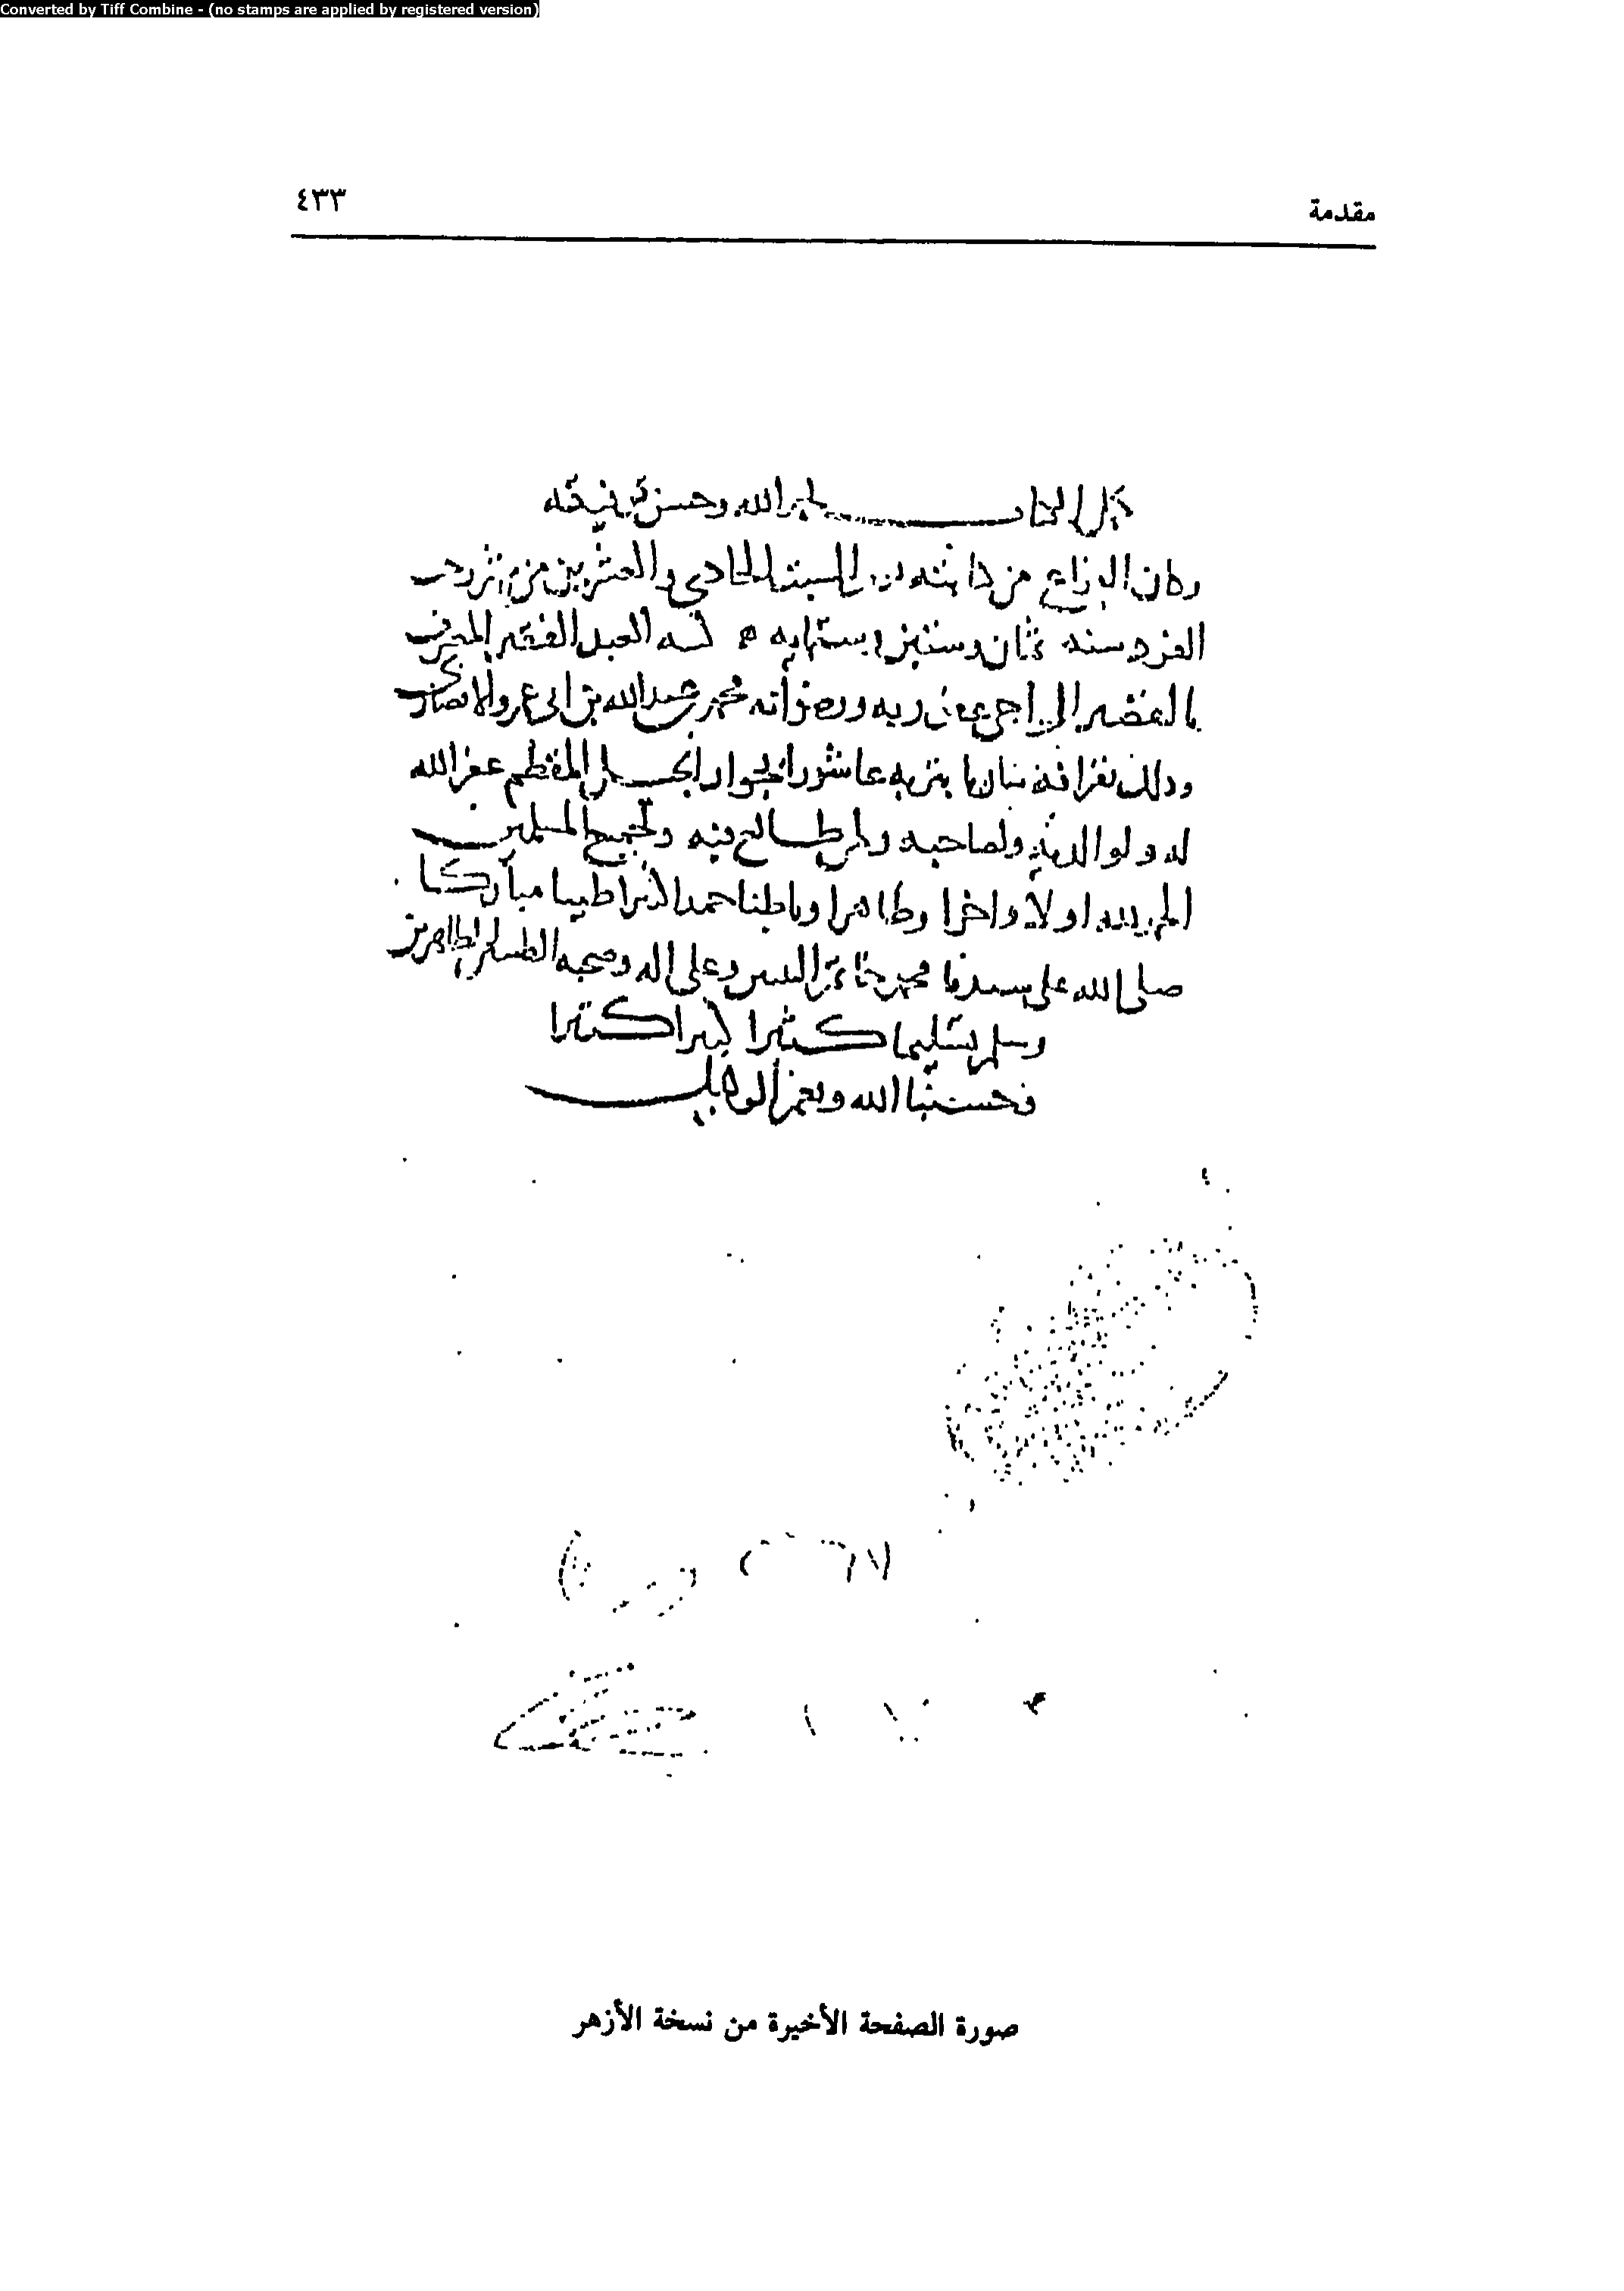 Converted by Tiff Combine - (no stamps are applied by registered version)
مقدمة
٤٣٣
كمل الكتاب بحمد الله وحسن توفيقه
وكان الفراغ من كتابته ليلة السبت الحادي والعشرين من شهر رجب
الفرد سنه ثمان وستين وستمايه كتبه العبد الفقير المعترف
بالتقصير الراجي عفو ربه ورضوانه محمد بن عبد الله بن ابي عمرو الانصاري
وذلك بقرافة بتربه عاشورا بجوار الجبل المقطم غفر الله
له ولوالديه ولصاحبه ولمن طالع فيه ولجميع المسلمين
الحمد لله اولا واخرا وظاهرا وباطنا حمدا كثيرا طيبا مباركا
صلى الله على سيدنا محمد خاتم النبيين وعلى اله وصحبه الطيبين الطاهرين
وسلم تسليما كثيرا كثيرا كثيرا
فحسبنا الله ونعم الوكيل
صورة الصفحة الأخيرة من نسخة الأزهر